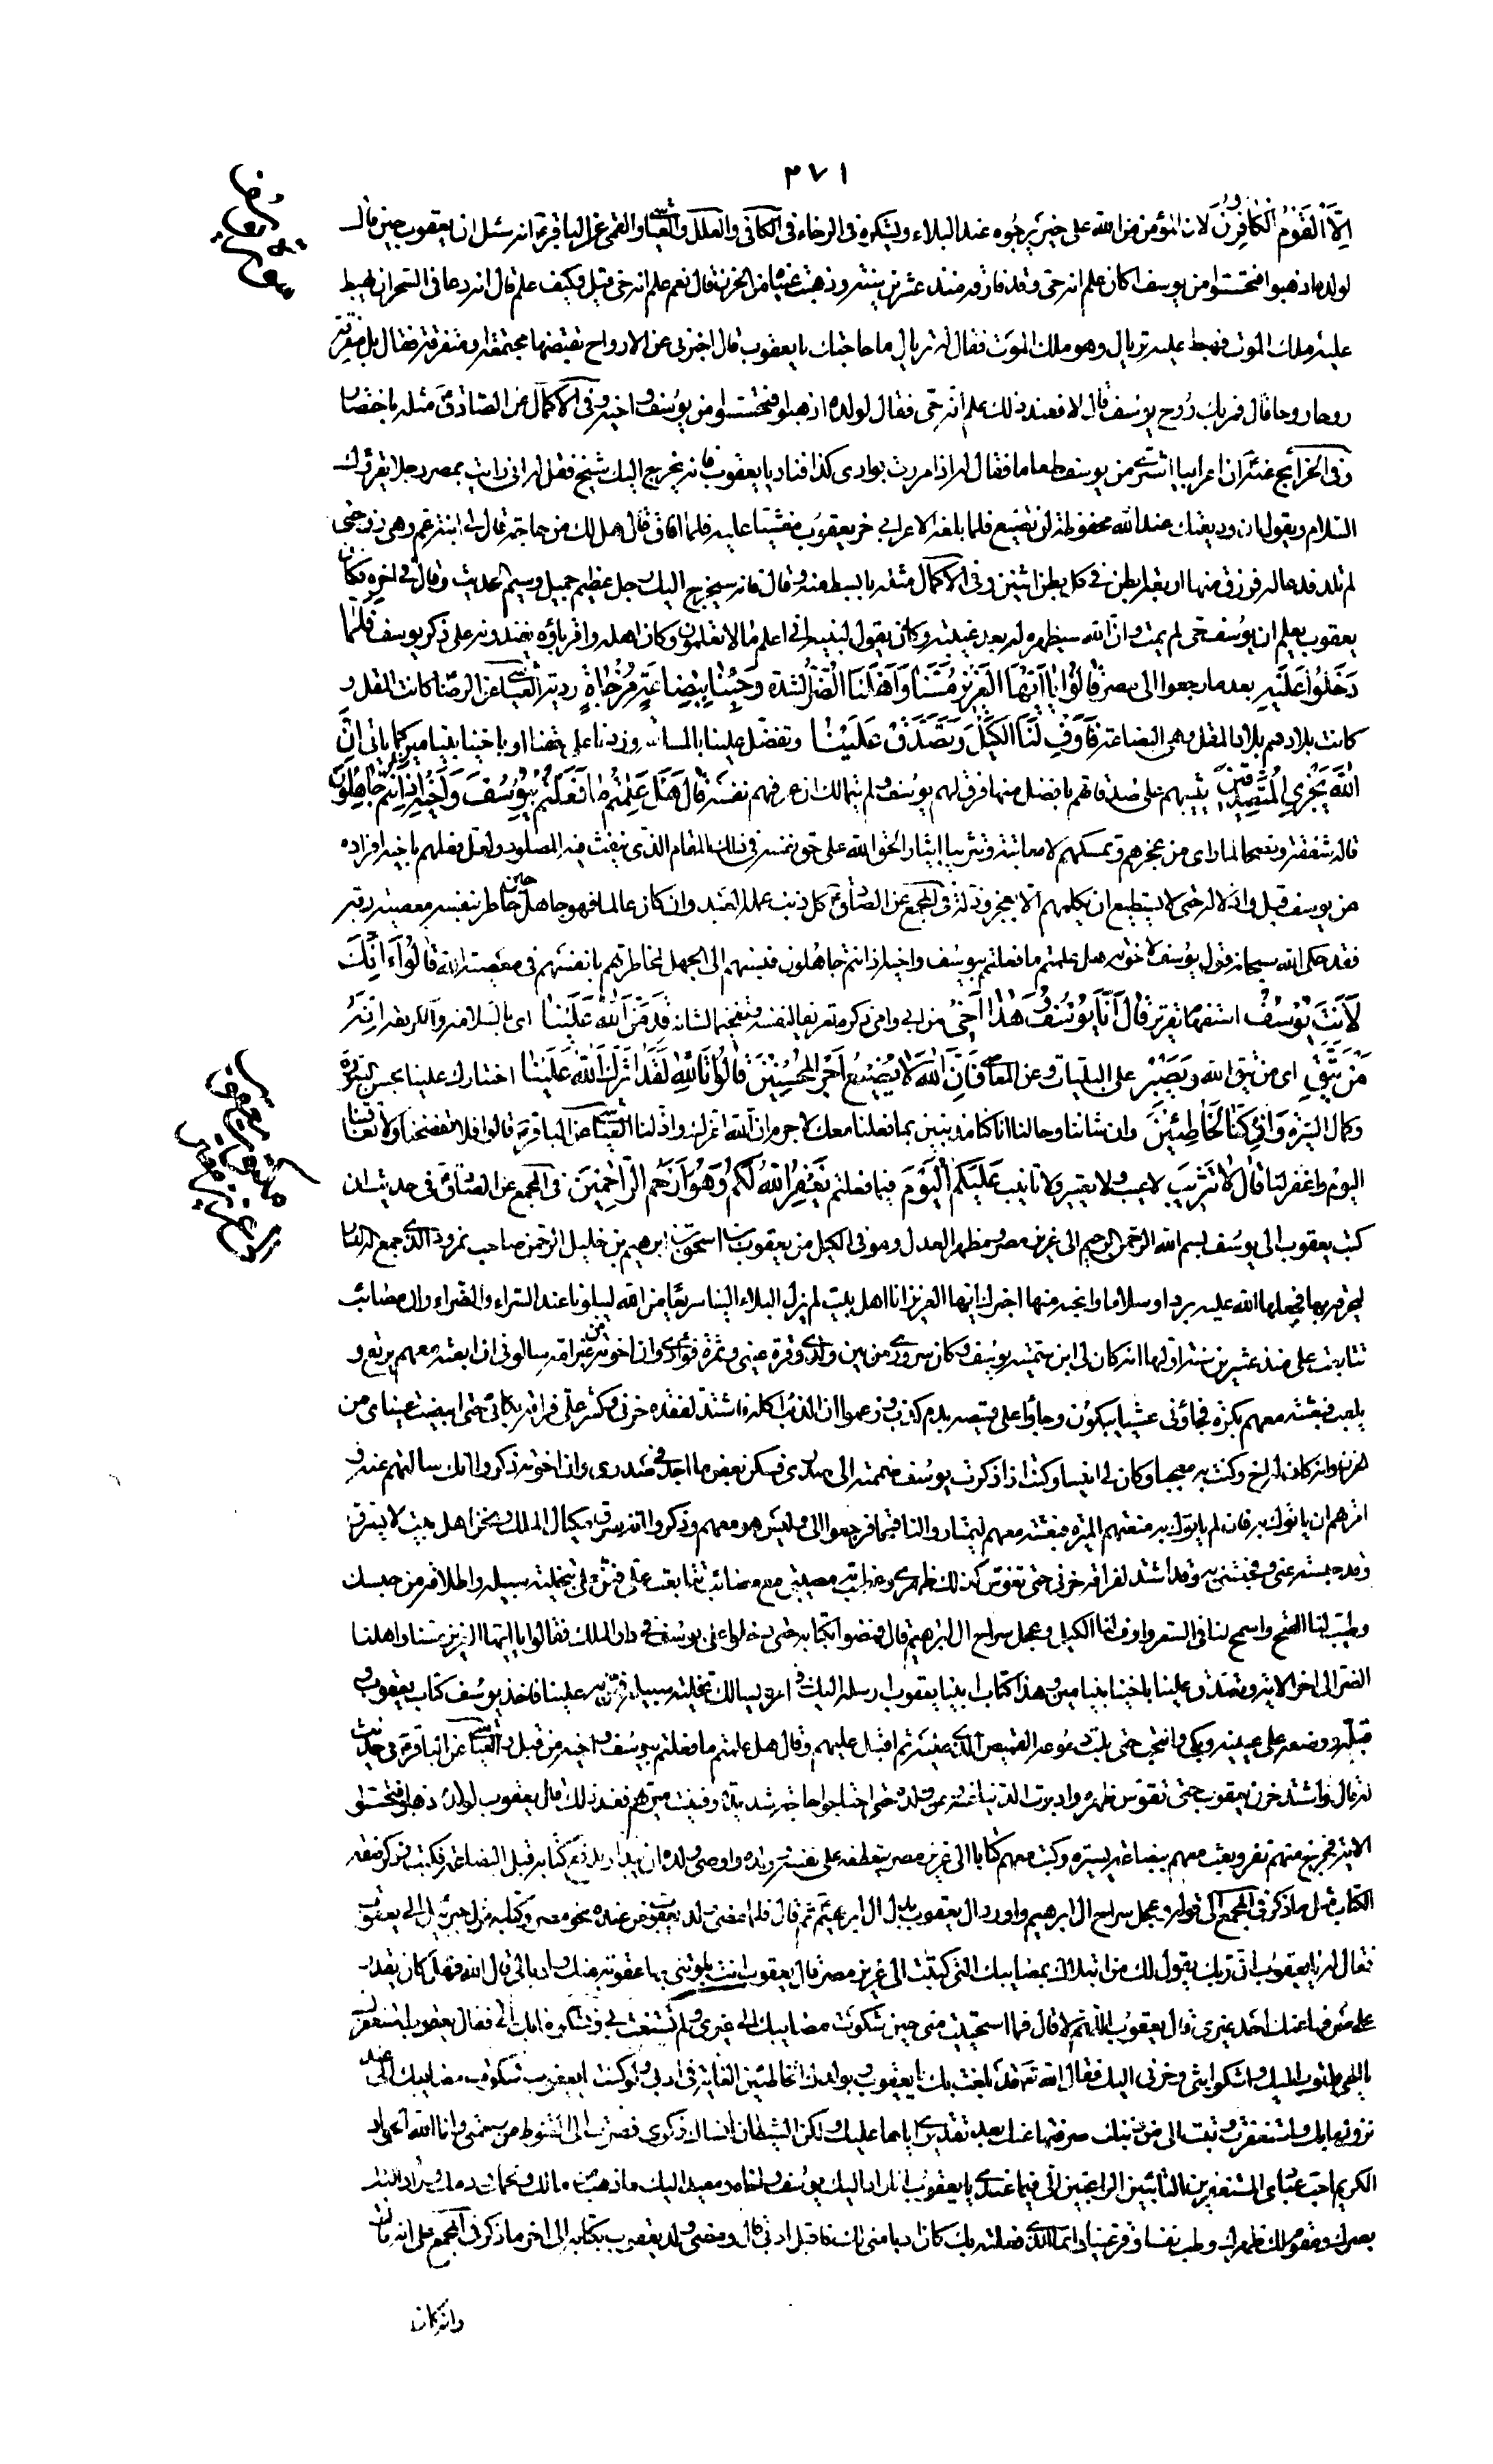 ٣٧١
اِلَّا الْقَوْمُ الْكَافِرُونَ لان المؤمن من الله على خير يرجوه عند البلاء ويشكره فى الرخاء فى الكافى والعلل والعياشى والقمى عن الباقر انه سئل ان يعقوب حين قال
لولده اذهبوا فتحسسوا من يوسف اكان علم انه حى وقد فارقه منذ عشرين سنة وذهبت عيناه من الحزن قال نعم علم انه حى قيل وكيف علم قال انه دعا فى السحر ان يهبط
عليه ملك الموت فهبط عليه تربال وهو ملك الموت فقال له تربال ما حاجتك يا يعقوب قال اخبرنى عن الارواح تقبضها مجتمعة او متفرقة فقال بل متفرقة
روحا روحا قال فمر بك روح يوسف قال لا فعند ذلك علم انه حى فقال لولده اذهبوا فتحسسوا من يوسف واخيه وفى الاكمال عن الصادق مثله باختصار
وفى الخرائج عنه ان اعرابيا اشترى من يوسف طعاما فقال له اذا مررت بوادى كذا فناد يا يعقوب فانه يخرج اليك شيخ فقل له انى رايت بمصر رجلا يقرئك
السلام ويقول ان وديعتك عند الله محفوظة لن تضيع فلما بلغه الاعرابى خر يعقوب مغشيا عليه فلما افاق قال هل لك من حاجة قال لى ابنة عم وهى زوجتى
لم تلد فدعا له فرزق منها اربعة ابطن فى كل بطن اثنين وفى الاكمال مثله بابسط منه وقال فانه سيخرج اليك رجل عظيم جميل وسيم الحديث وقال فى اخره فكان
يعقوب يعلم ان يوسف حى لم يمت وان الله سيظهره له بعد غيبته وكان يقول لبنيه انى اعلم ما لا تعلمون وكان اهله واقرباؤه يفندونه على ذكر يوسف فَلَمَّا
دَخَلُوا عَلَيْهِ بعد ما رجعوا الى مصر قَالُوا يَا اَيُّهَا الْعَزِيزُ مَسَّنَا وَاَهْلَنَا الضُّرُّ الشدة وَجِئْنَا بِبِضَاعَةٍ مُزْجَاةٍ ردية العياشى عن الرضا كانت المقل و
كانت بلادهم بلاد المقل وهى البضاعة فَاَوْفِ لَنَا الْكَيْلَ وَتَصَدَّقْ عَلَيْنَا وتفضل علينا بالمسامحة وزدنا على حقنا او باخينا بنيامين كما ياتى اِنَّ
اللّٰهَ يَجْزِى الْمُتَصَدِّقِينَ يثيبهم على صدقاتهم بافضل منها فرق لهم يوسف ولم يتمالك ان عرفهم نفسه قَالَ هَلْ عَلِمْتُمْ مَا فَعَلْتُمْ بِيُوسُفَ وَاَخِيهِ اِذْ اَنْتُمْ جَاهِلُونَ
قاله شفقة ونصحا لما راى من عجزهم وتمسكهم لا معاتبة وتثريبا ايثارا لحق الله على حق نفسه فى ذلك المقام الذى ينفث فيه المصدور ولعل فعلهم باخيه افراده
من يوسف قيل واذلاله حتى لا يستطيع ان يكلمهم الا بعجز وذلة فى المجمع عن الصادق كل ذنب عمله العبد وان كان عالما فهو جاهل حين خاطر بنفسه معصية ربه
فقد حكى الله سبحانه قول يوسف لاخوته هل علمتم ما فعلتم بيوسف واخيه اذ انتم جاهلون فنسبهم الى الجهل لمخاطرتهم بانفسهم فى معصية الله قَالُوا ءَاِنَّكَ
لَاَنْتَ يُوسُفُ استفهام تقرير قَالَ اَنَا يُوسُفُ وَهٰذَا اَخِى من ابى وامى ذكره تعريفا لنفسه وتفخيما لشانه قَدْ مَنَّ اللّٰهُ عَلَيْنَا اى بالسلامة والكرامة اِنَّهُ
مَنْ يَتَّقِ اى من يتق الله وَيَصْبِرْ على البليات وعن المعاصى فَاِنَّ اللّٰهَ لَا يُضِيعُ اَجْرَ الْمُحْسِنِينَ قَالُوا تَاللّٰهِ لَقَدْ اٰثَرَكَ اللّٰهُ عَلَيْنَا اختارك علينا بحسن الصورة
وكمال السيرة وَاِنْ كُنَّا لَخَاطِئِينَ وان شاننا وحالنا انا كنا مذنبين بما فعلنا معك لا جرم ان الله اعزك واذلنا العياشى عن الباقر قالوا فلا تفضحنا ولا تعاقبنا
اليوم واغفر لنا قَالَ لَا تَثْرِيبَ لا عيب ولا تعيير ولا تانيب عَلَيْكُمُ الْيَوْمَ فيما فعلتم يَغْفِرُ اللّٰهُ لَكُمْ وَهُوَ اَرْحَمُ الرَّاحِمِينَ فى المجمع عن الصادق فى حديث ان
كتب يعقوب الى يوسف بسم الله الرحمن الرحيم الى عزيز مصر ومظهر العدل وموفى الكيل من يعقوب بن اسحق بن ابرهيم بن خليل الرحمن صاحب نمرود الذى جمع له النار
ليحرقه بها فجعلها الله عليه بردا وسلاما وانجاه منها اخبرك ايها العزيز انا اهل بيت لم يزل البلاء الينا سريعا من الله ليبلونا عند السراء والضراء وان مصائب
تتابعت على منذ عشرين سنة اولها انه كان لى ابن سميته يوسف وكان سرورى من بين ولدى وقرة عينى وثمرة فؤادى وان اخوته من غير امه سالونى ان ابعثه معهم يرتع و
يلعب فبعثته معهم بكرة فجاؤنى عشيا يبكون وجاؤا على قميصه بدم كذب وزعموا ان الذئب اكله فاشتد لفقده حزنى وكثر على فراقه بكائى حتى ابيضت عيناى من
الحزن وانه كان له اخ وكنت به معجبا وكان لى انيسا وكنت اذا ذكرت يوسف ضممته الى صدرى فسكن بعض ما اجد فى صدرى وان اخوته ذكروا انك سالتهم عنه و
امرتهم ان ياتوك به فان لم ياتوك به منعتهم الميرة فبعثته معهم ليمتاروا لنا قمحا فرجعوا الى وليس هو معهم وذكروا انه سرق مكيال الملك ونحن اهل بيت لا نسرق
وقد حبسته عنى وفجعتنى به وقد اشتد لفراقه حزنى حتى تقوس لذلك ظهرى وعظمت به مصيبتى مع مصائب تتابعت على فمن على بتخلية سبيله واطلاقه من حبسك
وطيب لنا القمح واسمح لنا فى السعر واوف لنا الكيل وعجل سراح ال ابرهيم قال فمضوا بكتابه حتى دخلوا على يوسف فى دار الملك فقالوا يا ايها العزيز مسنا واهلنا
الضر الى اخر الاية وتصدق علينا باخينا بنيامين وهذا كتاب ابينا يعقوب ارسله اليك فى امره يسالك تخلية سبيله فمن به علينا فاخذ يوسف كتاب يعقوب و
قبله ووضعه على عينيه وبكى وانتحب حتى بلت دموعه القميص الذى عليه ثم اقبل عليهم وقال هل علمتم ما فعلتم بيوسف واخيه من قبل والعياشى عن الباقر فى حديث
له قال واشتد حزن يعقوب حتى تقوس ظهره وادبرت الدنيا عن يعقوب وولده حتى احتاجوا حاجة شديدة وفنيت ميرتهم فعند ذلك قال يعقوب لولده اذهبوا فتحسسوا
الاية فخرج منهم نفر وبعث معهم ببضاعة يسيرة وكتب معهم كتابا الى عزيز مصر يتعطفه على نفسه وولده واوصى ولده ان يبدؤا بدفع كتابه قبل البضاعة فكتب ثم ذكر صفة
الكتاب مثل ما ذكر فى المجمع الى قوله وعجل سراح ال ابرهيم واورد ال يعقوب بدل ال ابرهيم ثم قال فلما مضى ولد يعقوب من عنده نحو مصر بكتابه نزل جبرئيل الى يعقوب
فقال له يا يعقوب ان ربك يقول لك من ابتلاك بمصايبك التى كتبت الى عزيز مصر قال يعقوب انت بلوتنى بها عقوبة منك وادبا لى قال الله فهل كان يقدر
على صرفها عنك احد غيرى قال يعقوب اللهم لا قال فما استحييت منى حين شكوت مصايبك الى غيرى ولم تستغث بى وتشكو ما بك الى فقال يعقوب استغفرك
يا الهى واتوب اليك واشكو بثى وحزنى اليك فقال الله تع قد بلغت بك يا يعقوب وبولدك الخاطئين الغاية فى ادبى ولو كنت يا يعقوب شكوت مصايبك الى عند
نزولها بك واستغفرت وتبت الى من ذنبك لصرفتها عنك بعد تقديرى اياها عليك ولكن الشيطان انساك ذكرى فصرت الى القنوط من رحمتى وانا الله الجواد
الكريم احب عبادى المستغفرين التائبين الراغبين الى فيما عندى يا يعقوب انا راد اليك يوسف واخاه ومعيد اليك ما ذهب من مالك ولحمك ودمك وراد اليك
بصرك ومقوم لك ظهرك وطب نفسا وقر عينا وانما الذى فعلته بك كان ادبا منى لك فاقبل ادبى قال ومضى ولد يعقوب بكتابه الى اخر ما ذكر فى المجمع على انه قال
وانه كان